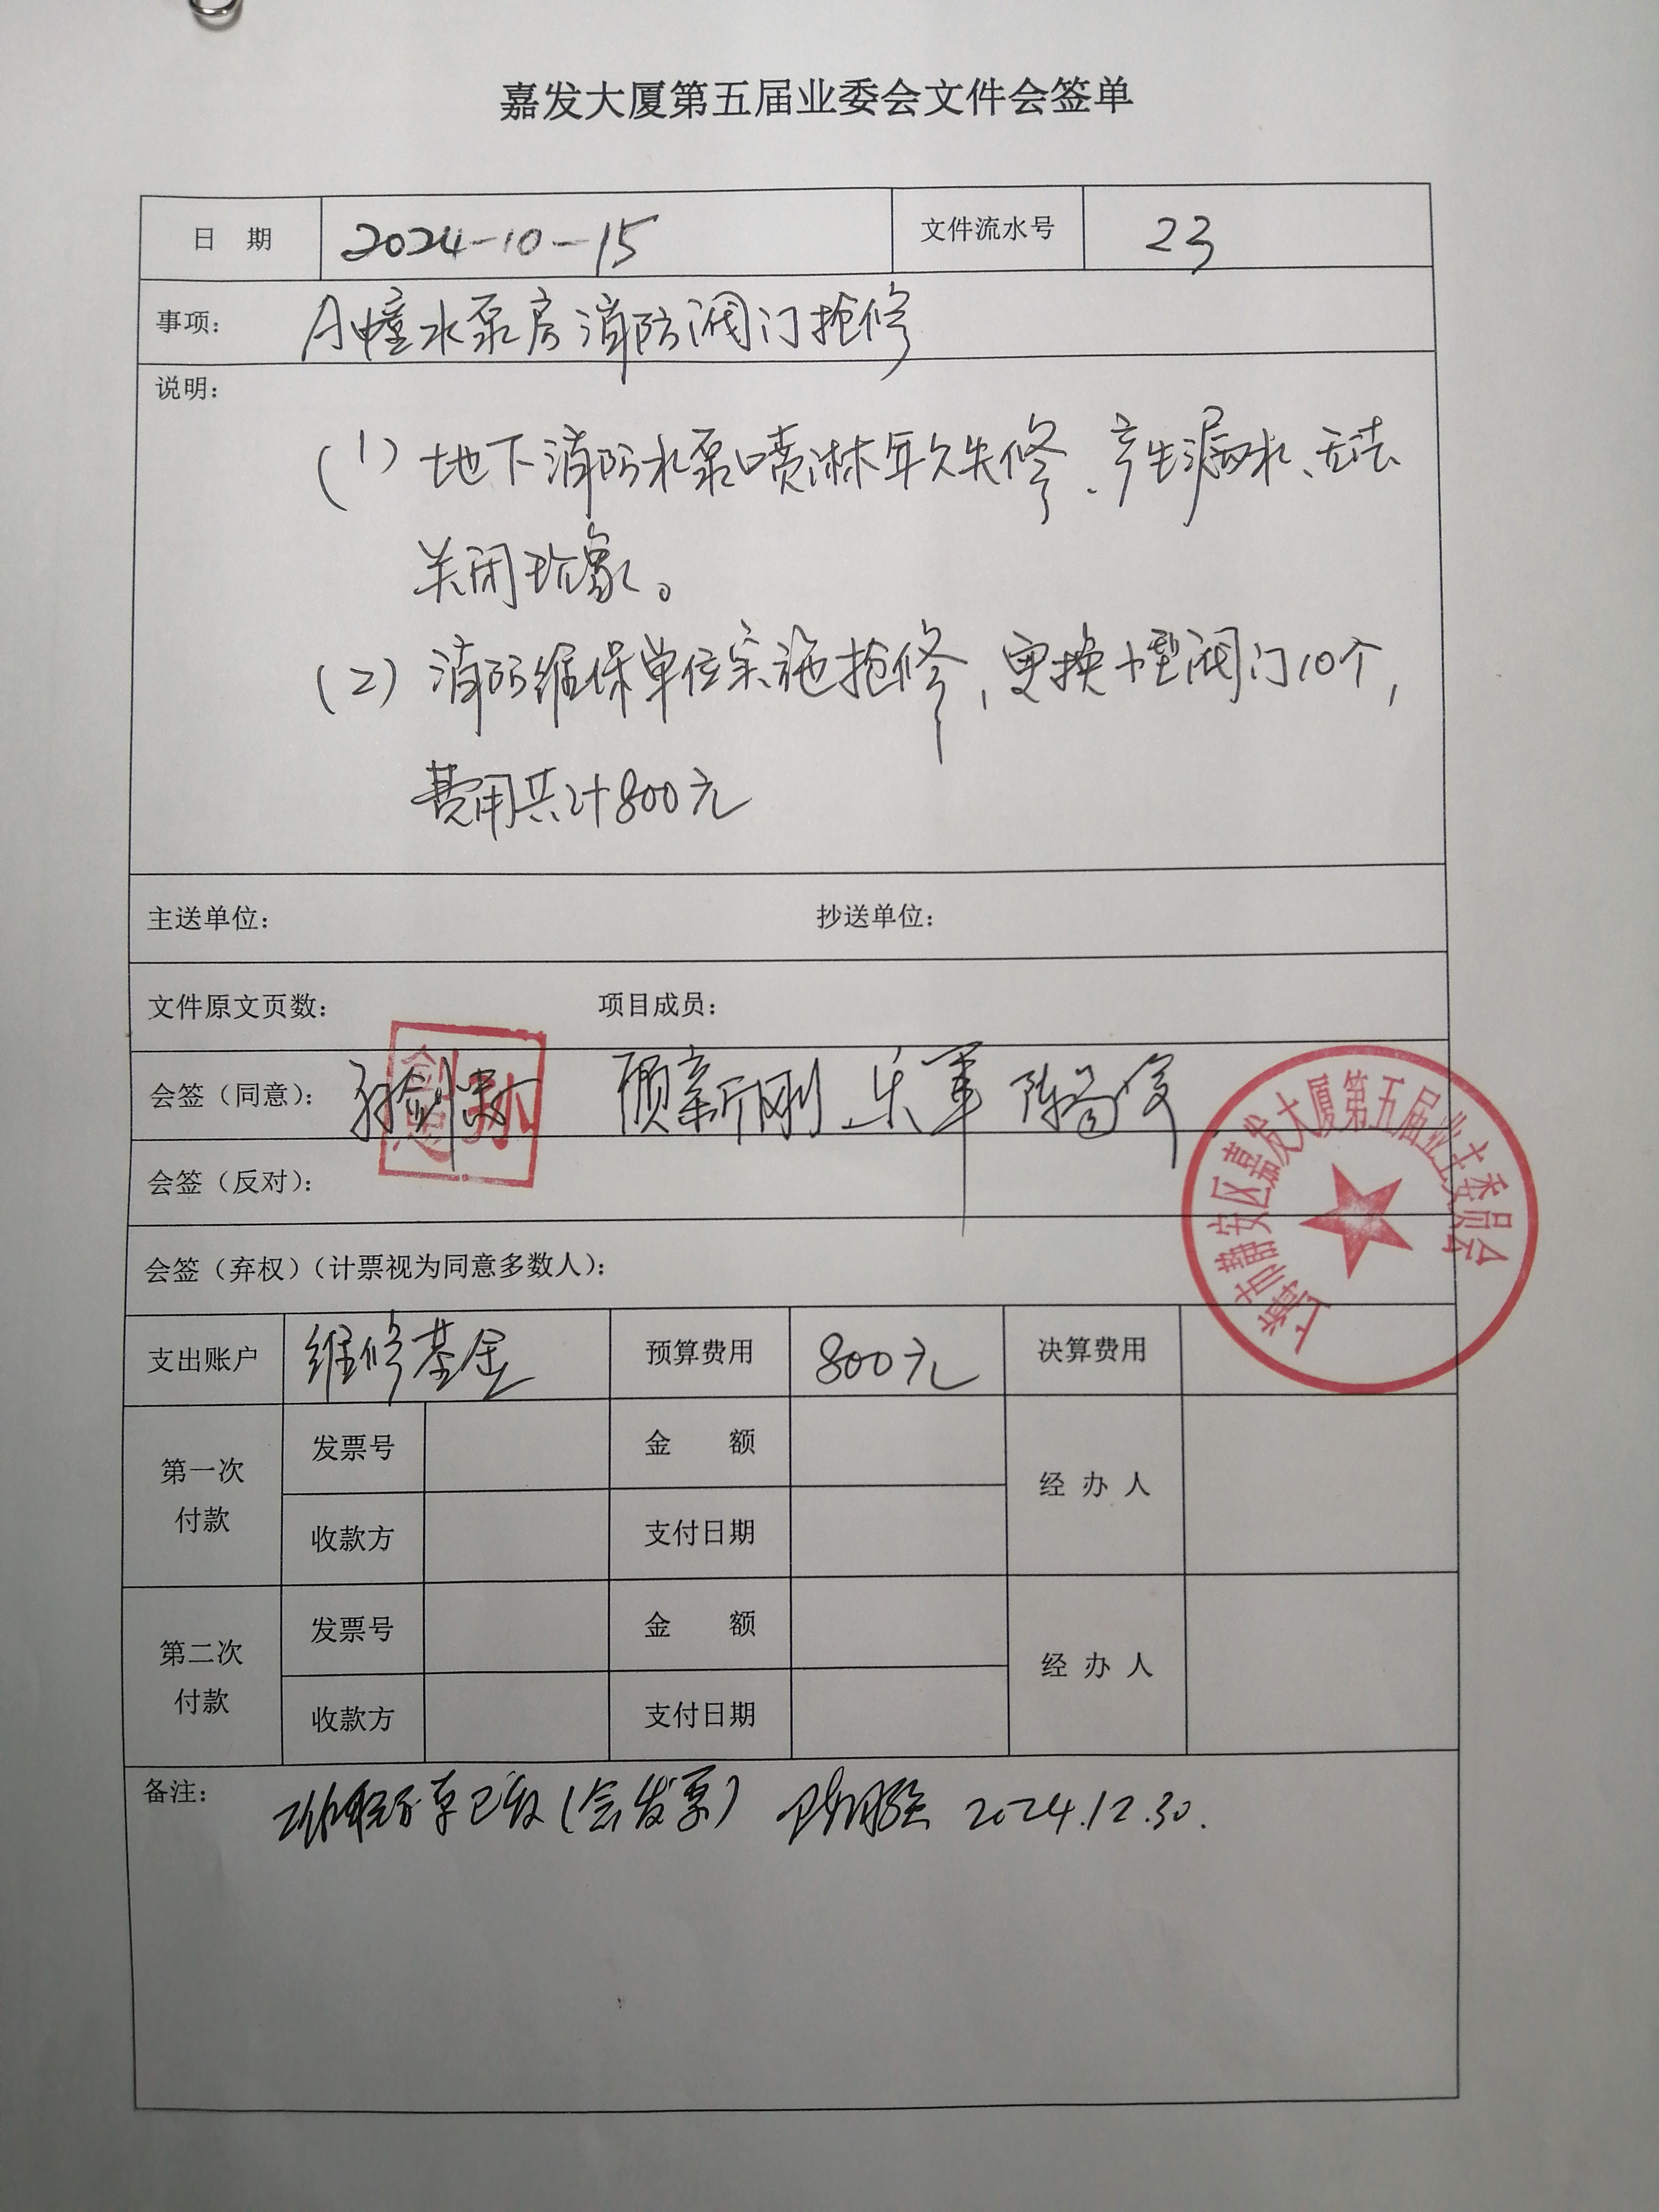 嘉发大厦第五届业委会文件会签单
日 期 2024-10-15 文件流水号 23
事项: A幢水泵房消防阀门抢修
说明:
(1) 地下消防水泵喷淋年久失修、产生漏水、无法
关闭现象。
(2) 消防维保单位实施抢修,更换小型阀门10个,
费用共计800元
主送单位: 抄送单位:
文件原文页数: 项目成员:
会签(同意): 孙剑 顾新刚 乐军 陈
会签(反对):
会签(弃权)(计票视为同意多数人):
上海市静安区嘉发大厦第五届业主委员会
支出账户 维修基金 预算费用 800元 决算费用
第一次付款 发票号 金 额 经 办 人
收款方 支付日期
第二次付款 发票号 金 额 经 办 人
收款方 支付日期
备注: (含发票) 2024.12.30.